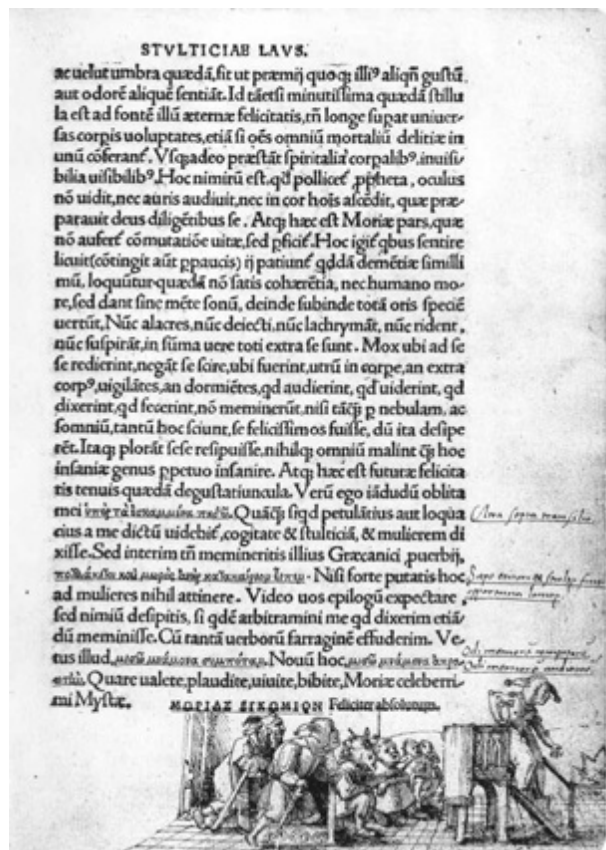 STVLTICIAE LAVS.
ac uelut umbra quædã, fit ut præmij quoqꝫ illiꝰ aliqñ gustũ,
aut odorẽ aliquẽ sentiãt. Id tãetsi minutissima quædã stillu
la est ad fontẽ illũ æternæ felicitatis, tñ longe sup̱at uniuer-
sas corp̱is uoluptates, etiã si oẽs omniũ mortaliũ delitiæ in
unũ cõferant᷑. Vsqꝫadeo præstãt spiritalia corpalibꝰ, inuisi-
bilia uisibilibꝰ. Hoc nimirũ est, qḋ pollicet᷑ ꝓpheta, oculus
nõ uidit, nec auris audiuit, nec in cor hoĩs ascẽdit, quæ præ-
parauit deus diligẽtibus se. Atqꝫ hæc est Moriæ pars, quæ
nõ aufert᷑ cõmutatiõe uitæ, sed ꝑficit᷑. Hoc igit᷑ qbus sentire
licuit (cõtingit aũt ꝑpaucis) ij patiunt᷑ qddã demẽtiæ simillí
mũ, loquũtur quædã nõ satis cohærẽtia, nec humano mo-
re, sed dant sine mẽte sonũ, deinde subinde totã oris speciẽ
uertũt, Nũc alacres, nũc deiecti, nũc lachrymãt, nũc rident,
nũc suspirãt, in sũma uere toti extra se sunt. Mox ubi ad se
se redierint, negãt se scire, ubi fuerint, utrũ in corꝑe, an extra
corpꝰ, uigilãtes, an dormiẽtes, qd audierint, qd uiderint, qd
dixerint, qd fecerint, nõ meminerũt, nisi tãꝗ̃ ꝑ nebulam, ac
somniũ, tantũ hoc sciunt, se felicissimos fuisse, dũ ita desipe
rẽt. Itaqꝫ plorãt sese resipuisse, nihilqꝫ omniũ malint ꝗ̃ hoc
insaniæ genus ꝑpetuo insanire. Atqꝫ hæc est futuræ felicita
tis tenuis quædã degustatiuncula. Verũ ego iãdudũ oblita
mei ὑπὲρ τὰ ἐσκαμμένα πηδῶ. Quãꝗ̃ siqd petulãtius aut loqua
cius a me dictũ uidebit᷑, cogitate & stulticiã, & mulierem di
xisse. Sed interim tñ memineritis illius Græcanici ꝓuerbij,
Nisi forte putatis hoc
ad mulieres nihil attinere. Video uos epilogũ expectare,
sed nimiũ desipitis, si qdẽ arbitramini me qd dixerim etiã
dũ meminisse. Cũ tantã uerborũ farraginẽ effuderim. Ve-
tus illud, μισῶ μνάμονα συμπόταν. Nouũ hoc, μισῶ μνάμονα ἀκρο
ατήν. Quare ualete, plaudite, uiuite, bibite, Moriæ celeberri-
mi Mystæ. ΜΩΡΙΑΣ ΕΓΚΩΜΙΟΝ Feliciter absolutum.